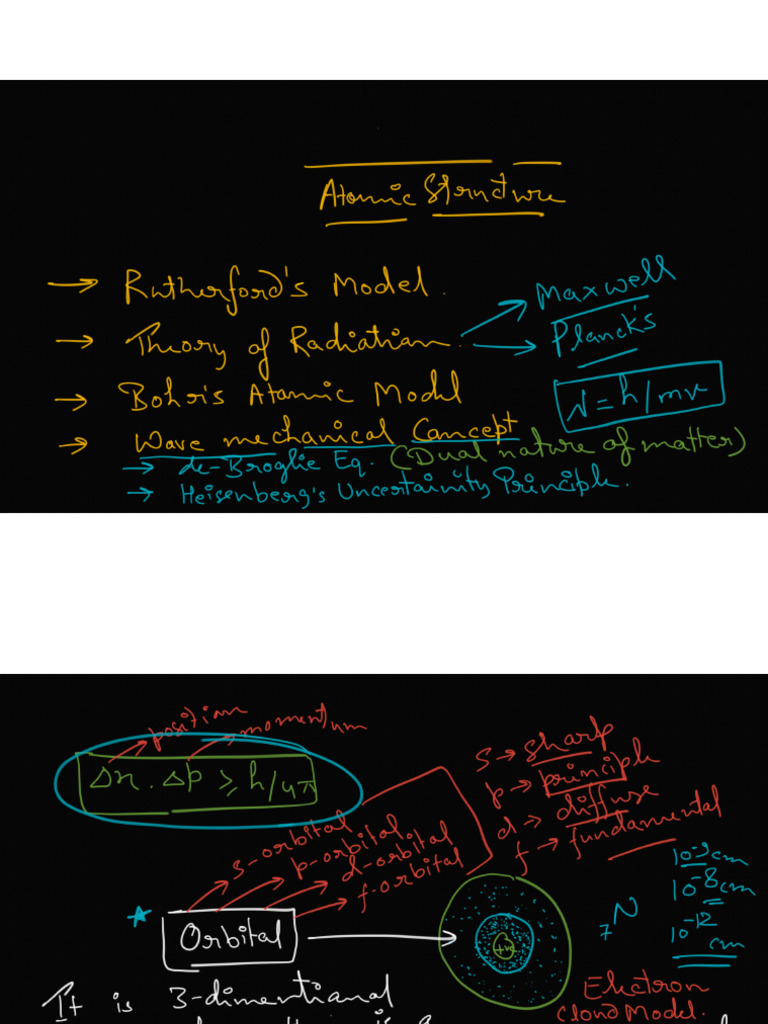 Atomic Structure
→ Rutherford's Model.
→ Theory of Radiation. → Maxwell
→ Planck's
→ Bohr's Atomic Model
λ = h/mv
→ Wave mechanical Concept
→ de-Broglie Eq. (Dual nature of matter)
→ Heisenberg's Uncertainity Principle.
position
momentum
Δx . Δp ≥ h/4π
s → sharp
p → principle
d → diffuse
f → fundamental
s-orbital
p-orbital
d-orbital
f-orbital
Orbital →
+ve
7N
10⁻⁸cm
10⁻¹² cm
Electron
Cloud Model.
It is 3-dimentional